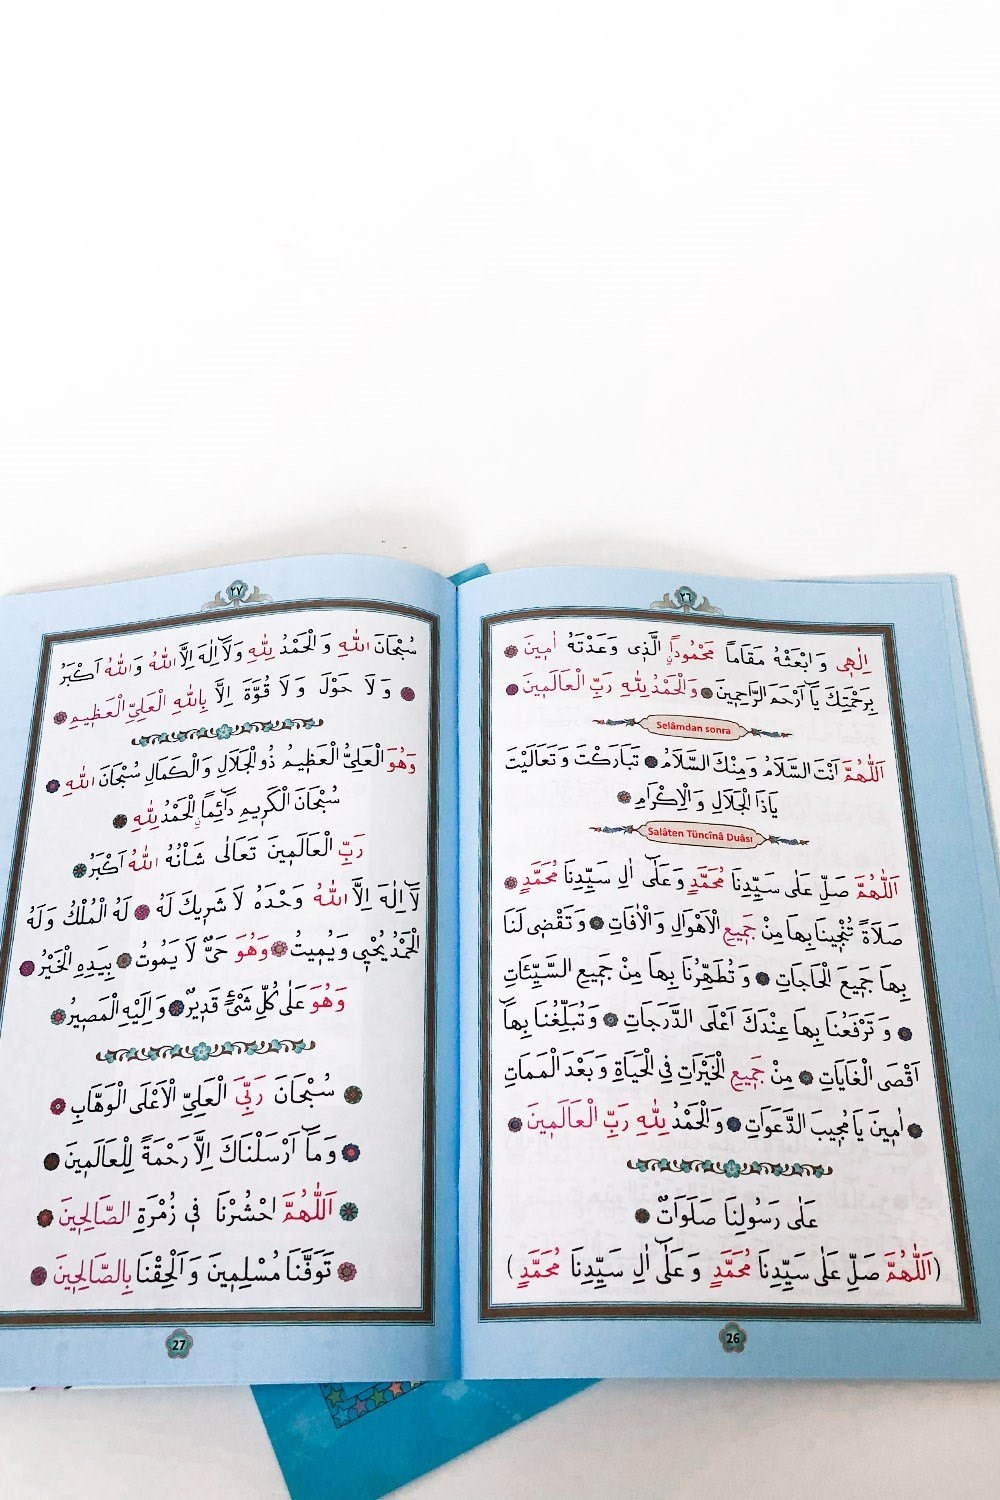 ٢٦
اِلٰهِى وَابْعَثْهُ مَقَاماً مَحْمُوداً الَّذِى وَعَدْتَهُ اٰمِينَ
بِرَحْمَتِكَ يَآ اَرْحَمَ الرَّاحِمِينَ وَالْحَمْدُ لِلّٰهِ رَبِّ الْعَالَمِينَ
Selâmdan sonra
اَللّٰهُمَّ اَنْتَ السَّلَامُ وَمِنْكَ السَّلَامُ تَبَارَكْتَ وَتَعَالَيْتَ
يَاذَا الْجَلَالِ وَالْاِكْرَامِ
Salâten Tüncînâ Duâsı
اَللّٰهُمَّ صَلِّ عَلٰى سَيِّدِنَا مُحَمَّدٍ وَعَلٰٓى اٰلِ سَيِّدِنَا مُحَمَّدٍ
صَلَاةً تُنْجِينَا بِهَا مِنْ جَمِيعِ الْاَهْوَالِ وَالْاٰفَاتِ وَتَقْضِى لَنَا
بِهَا جَمِيعَ الْحَاجَاتِ وَتُطَهِّرُنَا بِهَا مِنْ جَمِيعِ السَّيِّئَاتِ
وَتَرْفَعُنَا بِهَا عِنْدَكَ اَعْلَى الدَّرَجَاتِ وَتُبَلِّغُنَا بِهَآ
اَقْصَى الْغَايَاتِ مِنْ جَمِيعِ الْخَيْرَاتِ فِى الْحَيَاةِ وَبَعْدَ الْمَمَاتِ
اٰمِينَ يَا مُجِيبَ الدَّعَوَاتِ وَالْحَمْدُ لِلّٰهِ رَبِّ الْعَالَمِينَ
عَلٰى رَسُولِنَا صَلَوَاتٌ
(اَللّٰهُمَّ صَلِّ عَلٰى سَيِّدِنَا مُحَمَّدٍ وَعَلٰٓى اٰلِ سَيِّدِنَا مُحَمَّدٍ)
26
٢٧
سُبْحَانَ اللّٰهِ وَالْحَمْدُ لِلّٰهِ وَلَآ اِلٰهَ اِلَّا اللّٰهُ وَاللّٰهُ اَكْبَرُ
وَلَا حَوْلَ وَلَا قُوَّةَ اِلَّا بِاللّٰهِ الْعَلِىِّ الْعَظِيمِ
وَهُوَ الْعَلِىُّ الْعَظِيمُ ذُو الْجَلَالِ وَالْكَمَالِ سُبْحَانَ اللّٰهِ
سُبْحَانَ الْكَرِيمِ دَآئِماً الْحَمْدُ لِلّٰهِ
رَبِّ الْعَالَمِينَ تَعَالٰى شَانُهُ اللّٰهُ اَكْبَرُ
لَآ اِلٰهَ اِلَّا اللّٰهُ وَحْدَهُ لَا شَرِيكَ لَهُ لَهُ الْمُلْكُ وَلَهُ
الْحَمْدُ يُحْيِى وَيُمِيتُ وَهُوَ حَىٌّ لَا يَمُوتُ بِيَدِهِ الْخَيْرُ
وَهُوَ عَلٰى كُلِّ شَىْءٍ قَدِيرٌ وَاِلَيْهِ الْمَصِيرُ
سُبْحَانَ رَبِّىَ الْعَلِىِّ الْاَعْلَى الْوَهَّابِ
وَمَآ اَرْسَلْنَاكَ اِلَّا رَحْمَةً لِلْعَالَمِينَ
اَللّٰهُمَّ احْشُرْنَا فِى زُمْرَةِ الصَّالِحِينَ
تَوَفَّنَا مُسْلِمِينَ وَاَلْحِقْنَا بِالصَّالِحِينَ
27